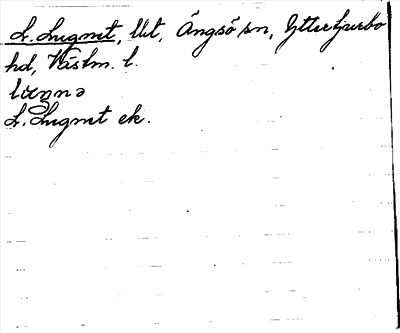 L. Lugnet, llt, Ängsö sn, Yttertjurbo
hd, Västm. l.
L. Lugnet ek.